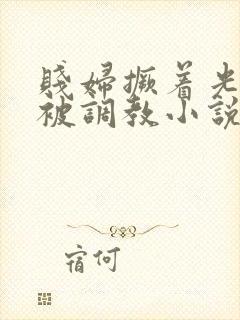 賤婦撅着光
被調教小說
宿何